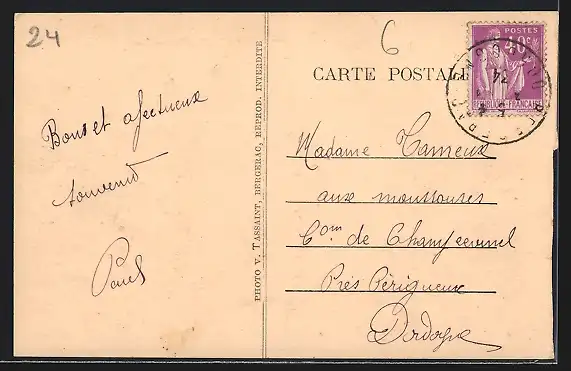 24
6
CARTE POSTALE
POSTES
40c
REPUBLIQUE FRANÇAISE
Bons et afectueux
souvenir
Paul
PHOTO V. TASSAINT, BERGERAC, REPROD. INTERDITE
Madame Tameux
aux moussoures
Com. de Champcevinel
Près Périgueux
Dordogne